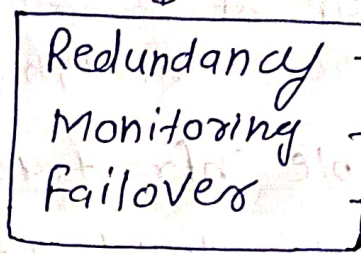 Redundancy -
Monitoring -
Failover -